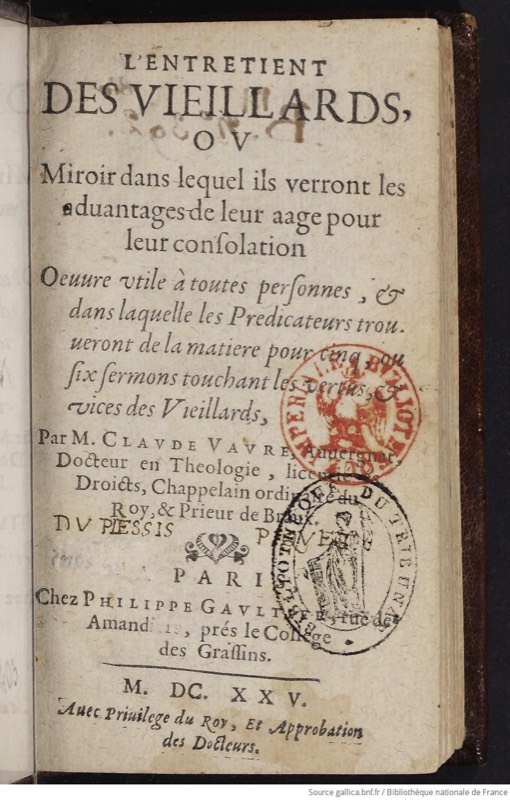 L'ENTRETIENT
DES VIEILLARDS,
OV
Miroir dans lequel ils verront les
aduantages de leur aage pour
leur conſolation
Oeuure vtile à toutes perſonnes, &
dans laquelle les Predicateurs trou-
ueront de la matiere pour cinq, ou
ſix ſermons touchant les vertus, &
vices des Vieillards,
Par M. CLAVDE VAVRE, Auuergnat,
Docteur en Theologie, licentié
Droicts, Chappelain ordinaire du
Roy, & Prieur de
DV PLESSIS
PARI
Chez PHILIPPE GAVLTIER, rue des
Amandiers, prés le College
des Graſſins.
M. DC. XXV.
Auec Priuilege du Roy, Et Approbation
des Docteurs.
BIBLIOTHEQUE DU TRIBUNAT
Source gallica.bnf.fr / Bibliothèque nationale de France